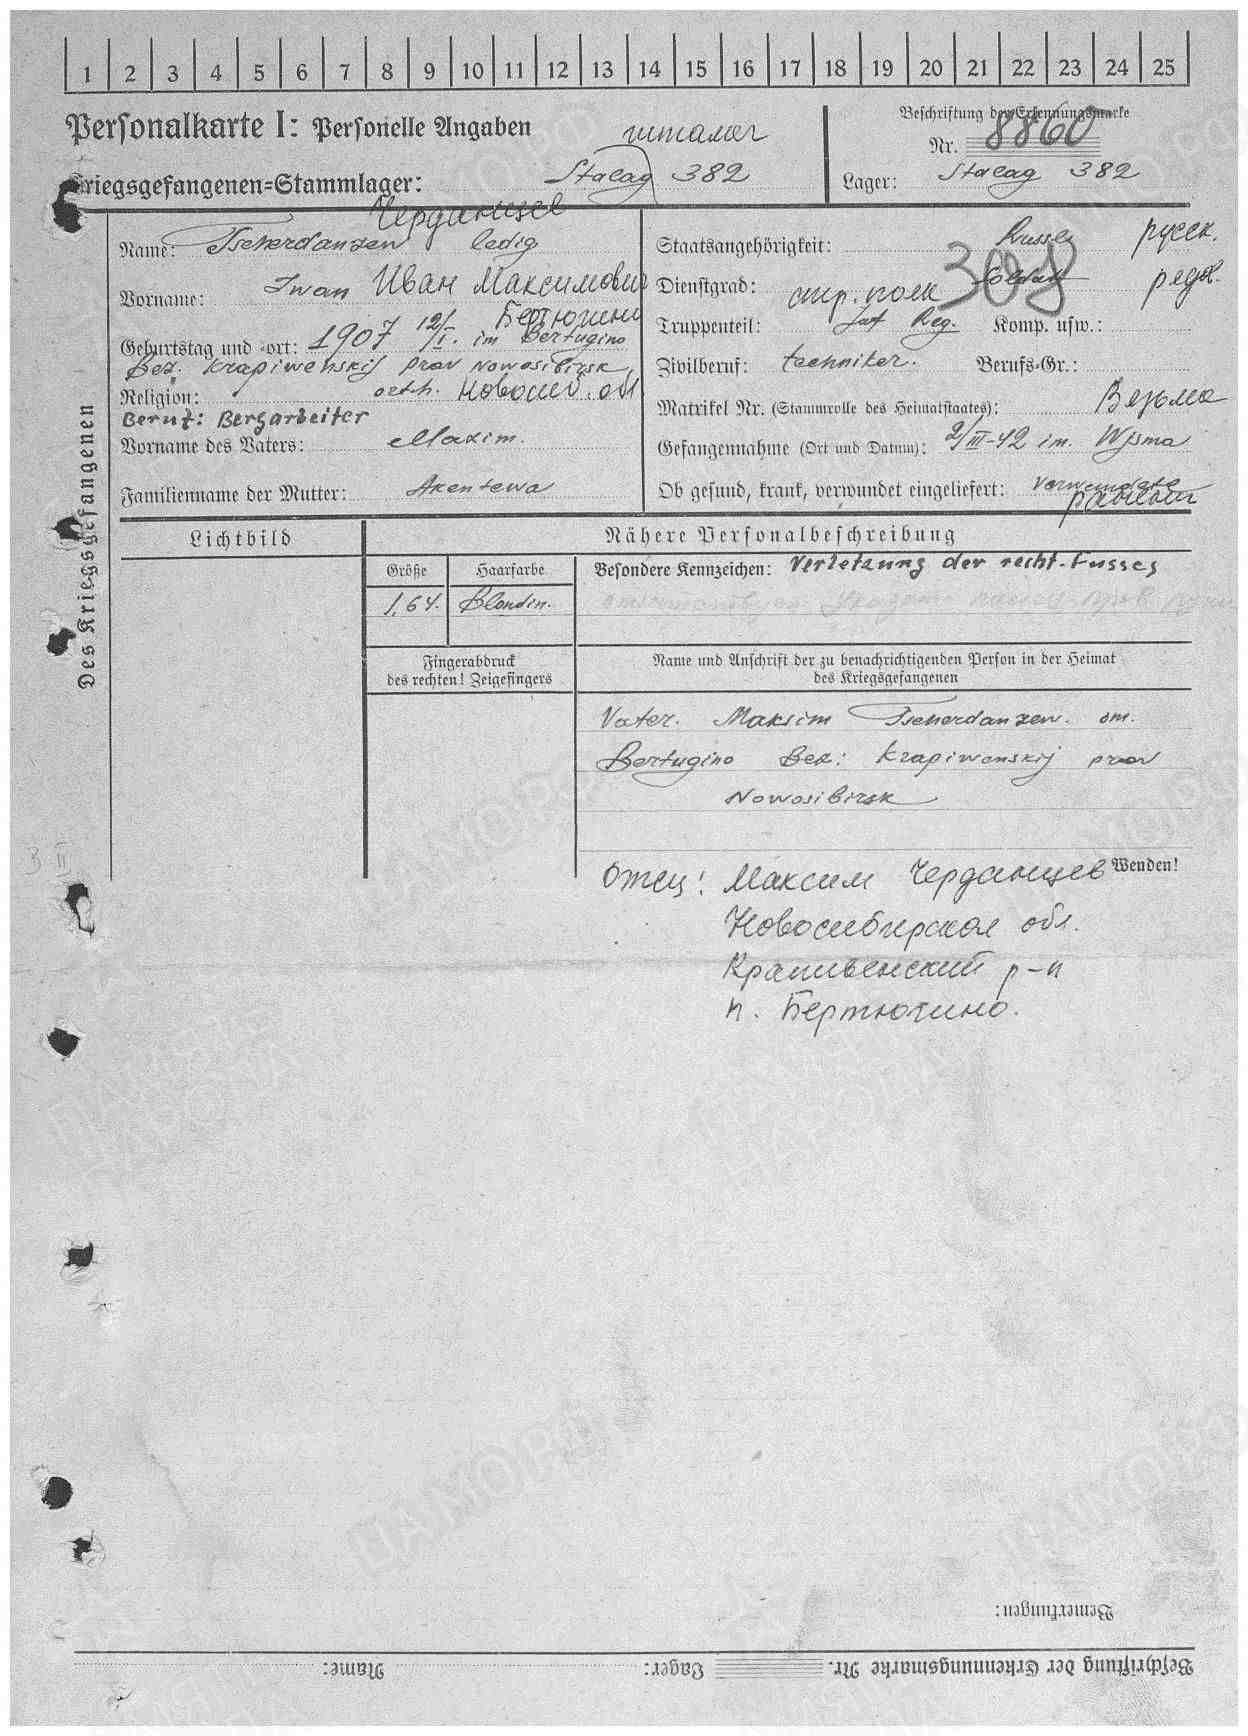 1 2 3 4 5 6 7 8 9 10 11 12 13 14 15 16 17 18 19 20 21 22 23 24 25
Personalkarte I: Personelle Angaben
шталаг
Kriegsgefangenen=Stammlager: Stalag 382
Beschriftung der Erkennungsmarke
Nr. 8860
Lager: Stalag 382
Des Kriegsgefangenen
Черданцев
Name: Tscherdanzew ledig
Vorname: Iwan Иван Максимович
Бертюгино
Geburtstag und =ort: 1907 12/I. im Bertugino
Bez. Krapiwenskij prov Nowosibirsk
Religion: orth. Новосиб. обл
Beruf: Bergarbeiter
Vorname des Vaters: Maxim.
Familienname der Mutter: Arentewa
Staatsangehörigkeit: Russe русск.
308
Dienstgrad: Soldat ряд.
стр. полк
Truppenteil: Inf Reg. Komp. usw.:
Zivilberuf: techniker. Berufs=Gr.:
Matrikel Nr. (Stammrolle des Heimatstaates):
Вязьма
Gefangennahme (Ort und Datum): 2/III-42 im. Wjsma
Ob gesund, krank, verwundet eingeliefert: Verwundete
ранен
Lichtbild
Nähere Personalbeschreibung
Größe Haarfarbe
1,64. Blondin.
Besondere Kennzeichen: Verletzung der recht. Fusses
Fingerabdruck
des rechten! Zeigefingers
Name und Anschrift der zu benachrichtigenden Person in der Heimat
des Kriegsgefangenen
Vater. Maksim Tscherdanzew. om.
Bertugino Bez: Krapiwenskij prov
Nowosibirsk
Wenden!
Отец: Максим Черданцев
Новосибирская обл.
Крапивенский р-н
п. Бертюгино.
Bemerkungen:
Beschriftung der Erkennungsmarke Nr. Lager: Name:
ЦАМО РФ